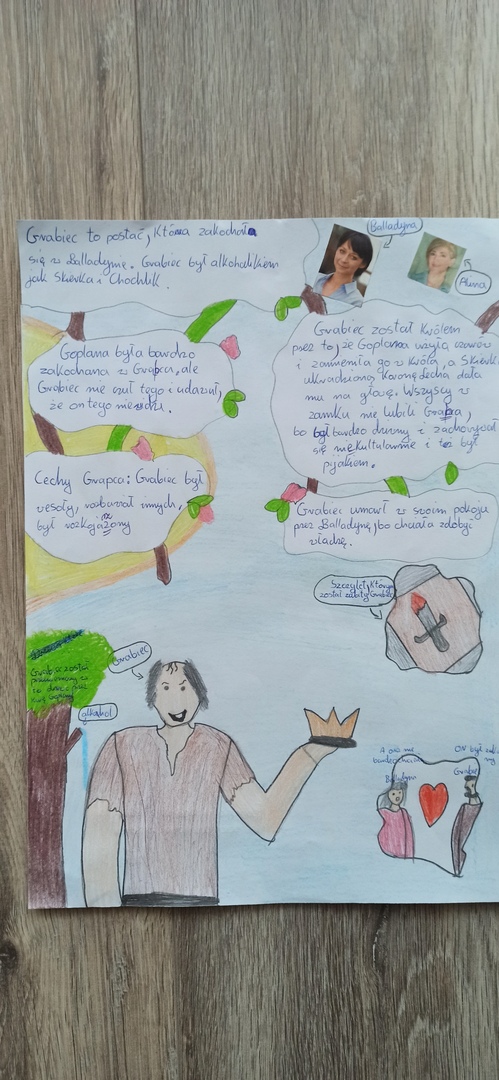 Grabiec to postać, która zakochała
się w Balladynie. Grabiec był alkoholikiem
jak Skierka i Chochlik.
Balladyna
Alina
Goplana była bardzo
zakochana w Grapca, ale
Grabiec nie czuł tego i udawał,
że on tego nie widzi.
Grabiec został królem
przez to, że Goplana użyła czarów
i zamieniła go w króla, a Skierka
ukradzioną koronę Lecha dała
mu na głowę. Wszyscy w
zamku nie lubili Grapca,
bo był bardzo dumny i zachowywał
się niekulturalnie i też był
pijakiem.
Cechy Grapca: Grabiec był
wesoły, rozbawiał innych,
był rozkojażony
Grabiec umarł w swoim pokoju
przez Balladynę, bo chciała zdobyć
władzę.
Sztylet, którym
został zabity Grabiec
Grabiec został
alkohol
Grabiec
A ona nie
bardzo
Balladyna
ON był
Grabiec